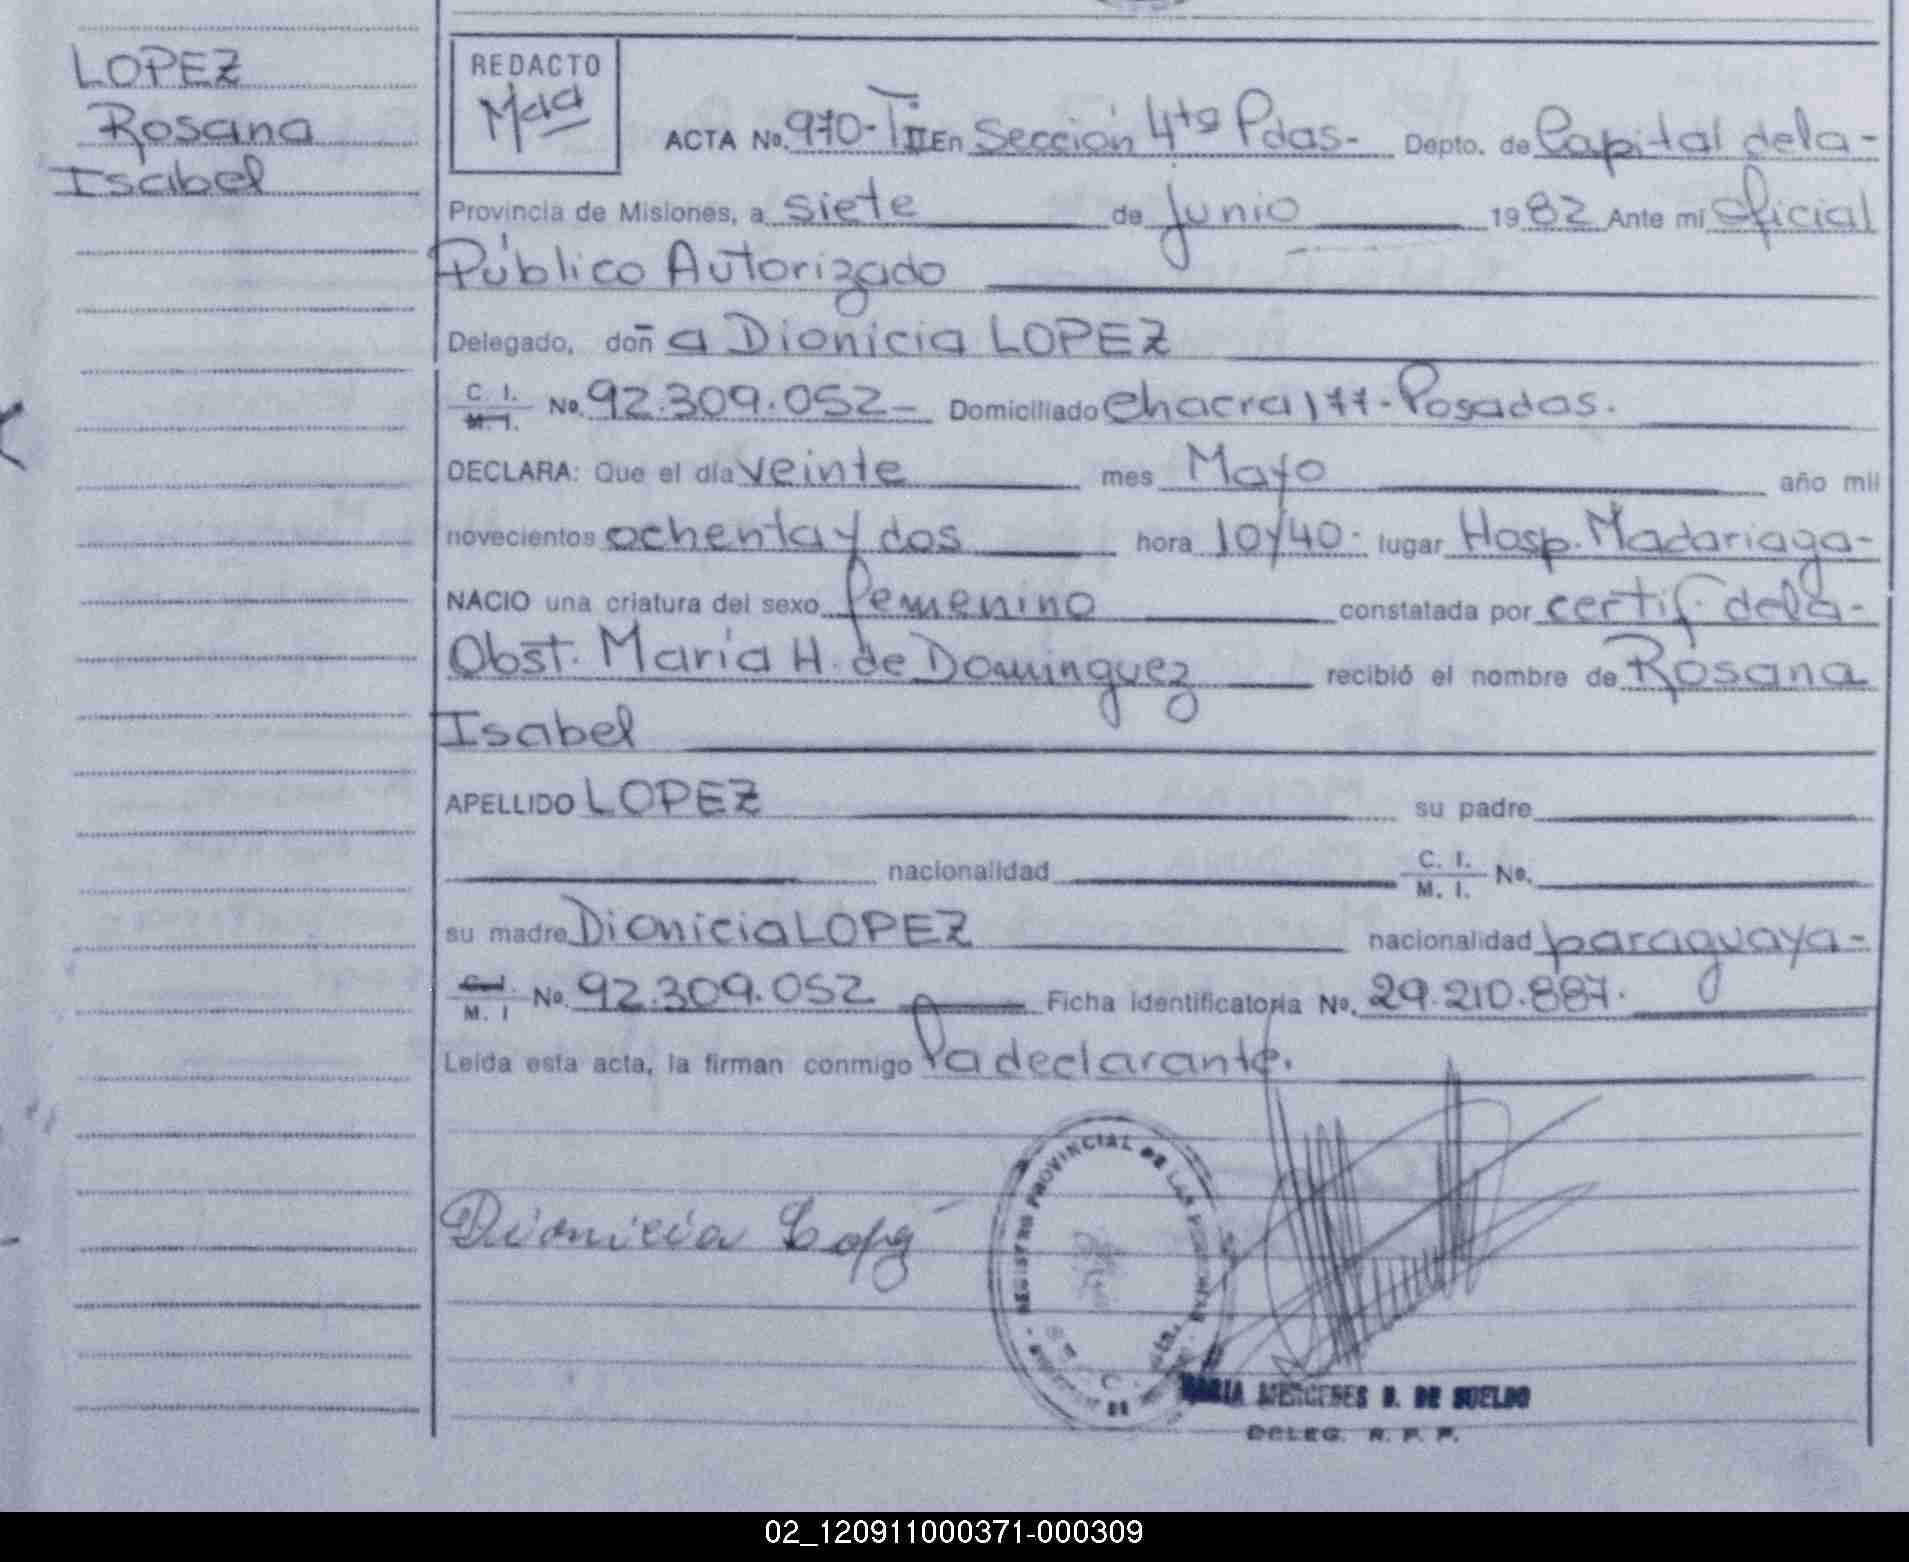 LOPEZ
Rosana
Isabel
REDACTO
ACTA No. 970-TII En Sección 4ta Pdas- Depto. de Capital dela-
Provincia de Misiones, a siete de junio 1982 Ante mí oficial
Público Autorizado
Delegado, doña Dionicia LOPEZ
C. I. M. I. No. 92.309.052- Domiciliado chacra 177-Posadas.
DECLARA: Que el día veinte mes Mayo año mil
novecientos ochenta y dos hora 10y40- lugar Hosp. Madariaga-
NACIO una criatura del sexo femenino constatada por certif. dela-
Obst. María H. de Dominguez recibió el nombre de Rosana
Isabel
APELLIDO LOPEZ su padre
nacionalidad C. I. M. I. No.
su madre Dionicia LOPEZ nacionalidad paraguaya-
C. I. M. I No. 92.309.052 Ficha identificatoria No. 29.210.887.
Leída esta acta, la firman conmigo la declarante.
REGISTRO PROVINCIAL DE LAS PERSONAS
Dionicia Lopez
MARIA MERCEDES B. DE SUELDO
DELEG. R. P. P.
02_120911000371-000309